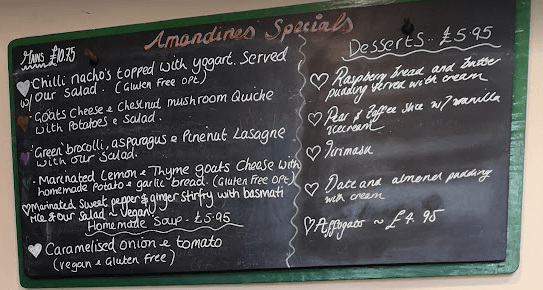 Amandines Specials
Mains £10.75
Chilli nacho's topped with yogart. Served
w/ our salad. (Gluten Free OPt)
Goats Cheese & Chestnut mushroom Quiche
with Potatoes & Salad.
Green brocolli, asparagus & Pinenut Lasagne
with our Salad.
Marinated Lemon & Thyme goats Cheese with
homemade Potato & garlic bread. (Gluten Free OPt)
Marinated sweet pepper & ginger stirfry with basmati
rice & our salad ~ vegan
Homemade Soup - £5.95
Caramelised onion & tomato
(vegan & Gluten Free)
Desserts - £5.95
Raspberry bread and butter
pudding served with cream
Pear & Toffee slice w/ vanilla
icecream
Tirimasu
Date and almond pudding
with cream
Affogato ~ £4.95